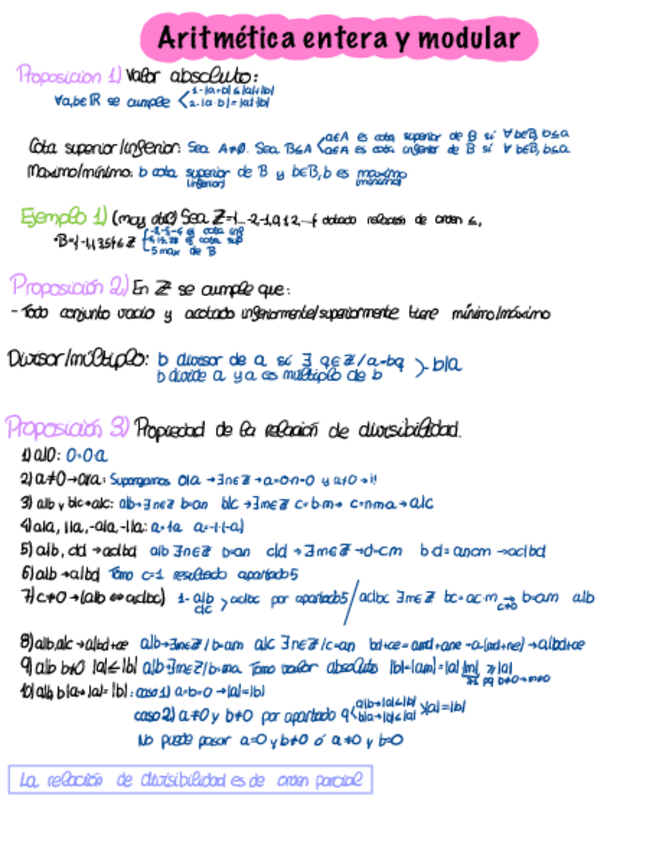 Aritmética entera y modular
Proposición 1) Valor absoluto:
∀a,b∈ℝ se cumple 1-|a+b|≤|a|+|b|
2.|a·b|=|a|·|b|
Cota superior/inferior: Sea A≠∅. Sea B⊆A a∈A es cota superior de B si ∀b∈B, b≤a
a∈A es cota inferior de B si ∀b∈B, b≤a
Maximo/mínimo: b cota superior de B y b∈B, b es maximo
(inferior) (minimo)
Ejemplo 1) (muy útil) Sea Z={...-2,-1,0,1,2...} dotado relación de orden ≤,
·B={-1,1,3,5}⊆Z es cota inf
es cota sup
5 max de B
Proposición 2) En Z se cumple que:
- Todo conjunto vacio y acotado inferiormente/superiormente tiene mínimo/máximo
Divisor/múltiplo: b divisor de a si ∃ q∈Z/a=bq
b divide a y a es multiplo de b b|a
Proposición 3) Propiedad de la relación de divisibilidad.
1) a|0: 0=0·a
2) a≠0→0∤a: Supongamos 0|a →∃n∈Z→a=0·n=0 y a≠0→!!
3) a|b y b|c→a|c: a|b→∃n∈Z b=an b|c →∃m∈Z c=b·m→ c=n·m·a→a|c
4) a|a, 1|a, -a|a, -1|a: a=1·a a=-1(-a)
5) a|b, c|d →ac|bd a|b ∃n∈Z b=an c|d →∃m∈Z→d=cm b·d=ancm →ac|bd
6) a|b →a|bd Tomo c=1 resultado apartado5
7) c≠0→(a|b ⇔ac|bc) 1- a|b c|c ac|bc por apartado5/ ac|bc ∃m∈Z bc=ac·m → c≠0 b=am a|b
8) a|b,a|c →a|bd+ce a|b→∃m∈Z/b=am a|c ∃n∈Z/c=an bd+ce=amd+ane=a·(md+ne)→a|bd+ce
9) a|b b≠0 |a|≤|b| a|b→∃m∈Z/b=ma Tomo valor absoluto |b|=|am|=|a||m|≥|a|
pq b≠0→m≠0
10) a|b, b|a→|a|=|b|: caso 1) a=b=0→|a|=|b|
caso 2) a≠0 y b≠0 por apartado 9 a|b→|a|≤|b|
b|a→|b|≤|a| |a|=|b|
No puede pasar a=0 y b≠0 ó a≠0 y b=0
La relación de divisibilidad es de orden parcial